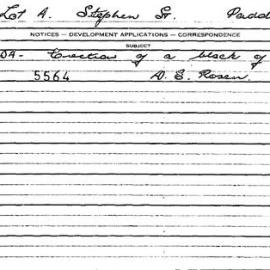 Lot A. Stephen St. Padd
NOTICES — DEVELOPMENT APPLICATIONS — CORRESPONDENCE
SUBJECT
DA- Erection of a block of
5564 D. E. Rosen